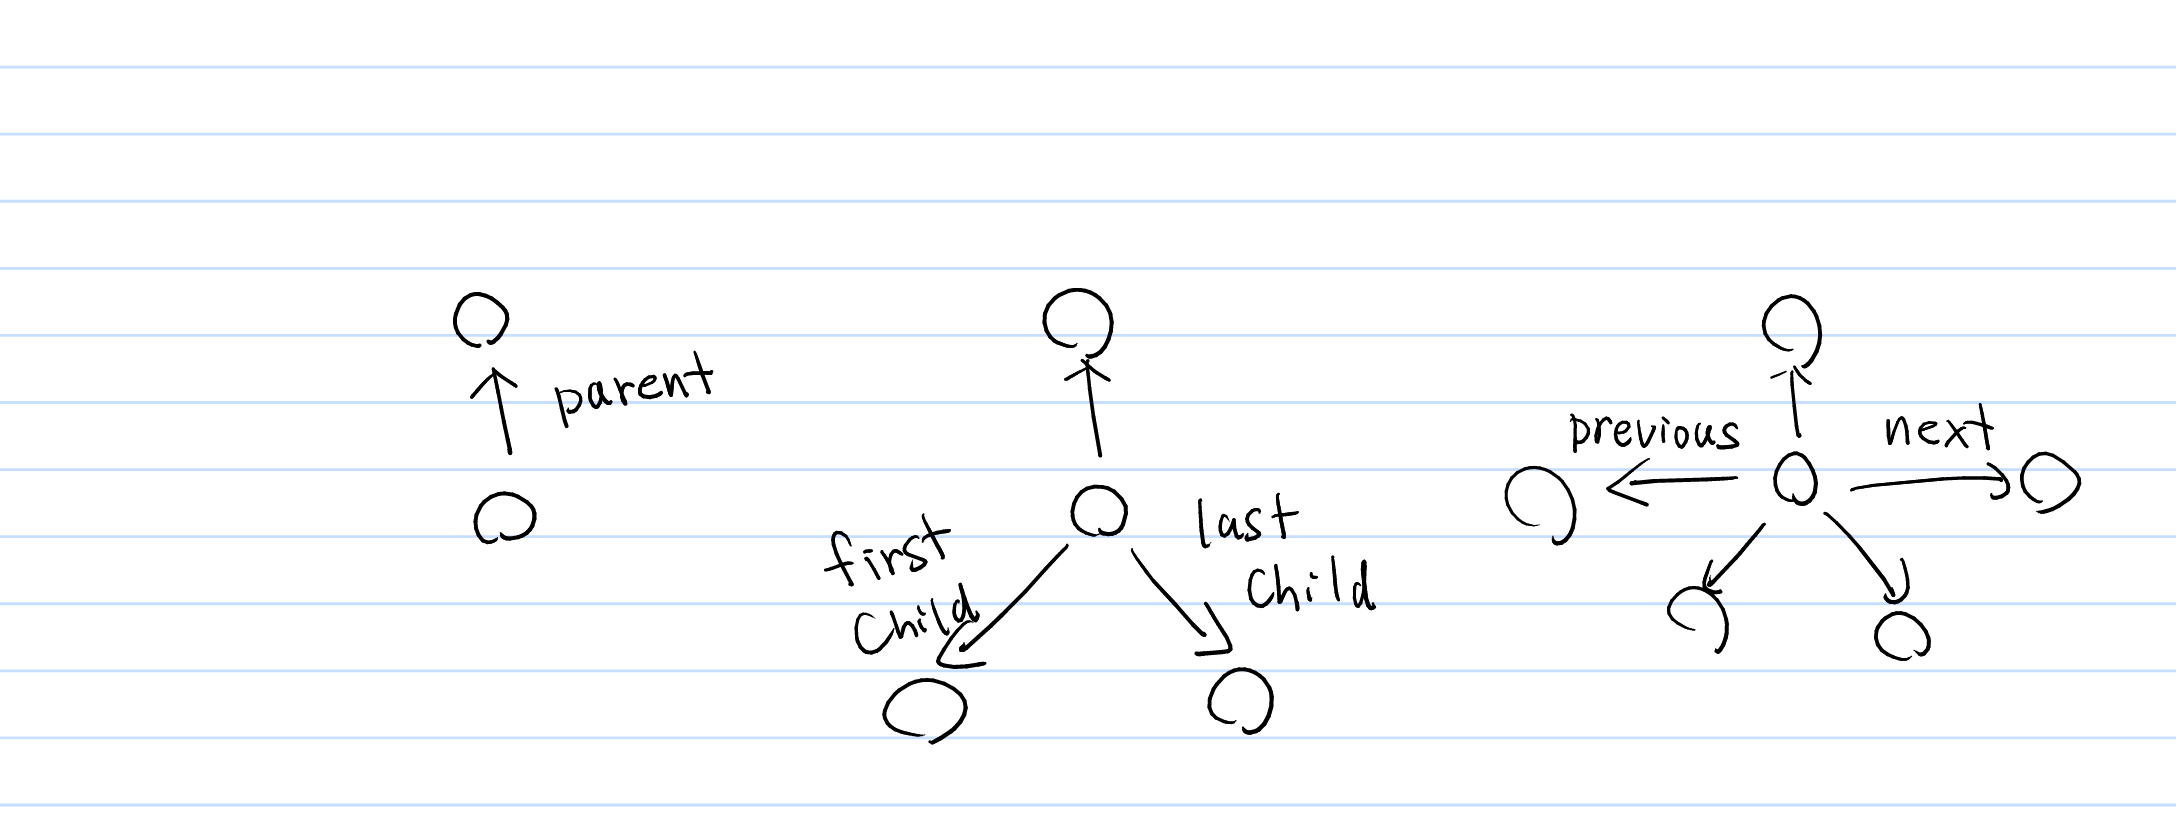 parent
first
Child
last
Child
previous
next